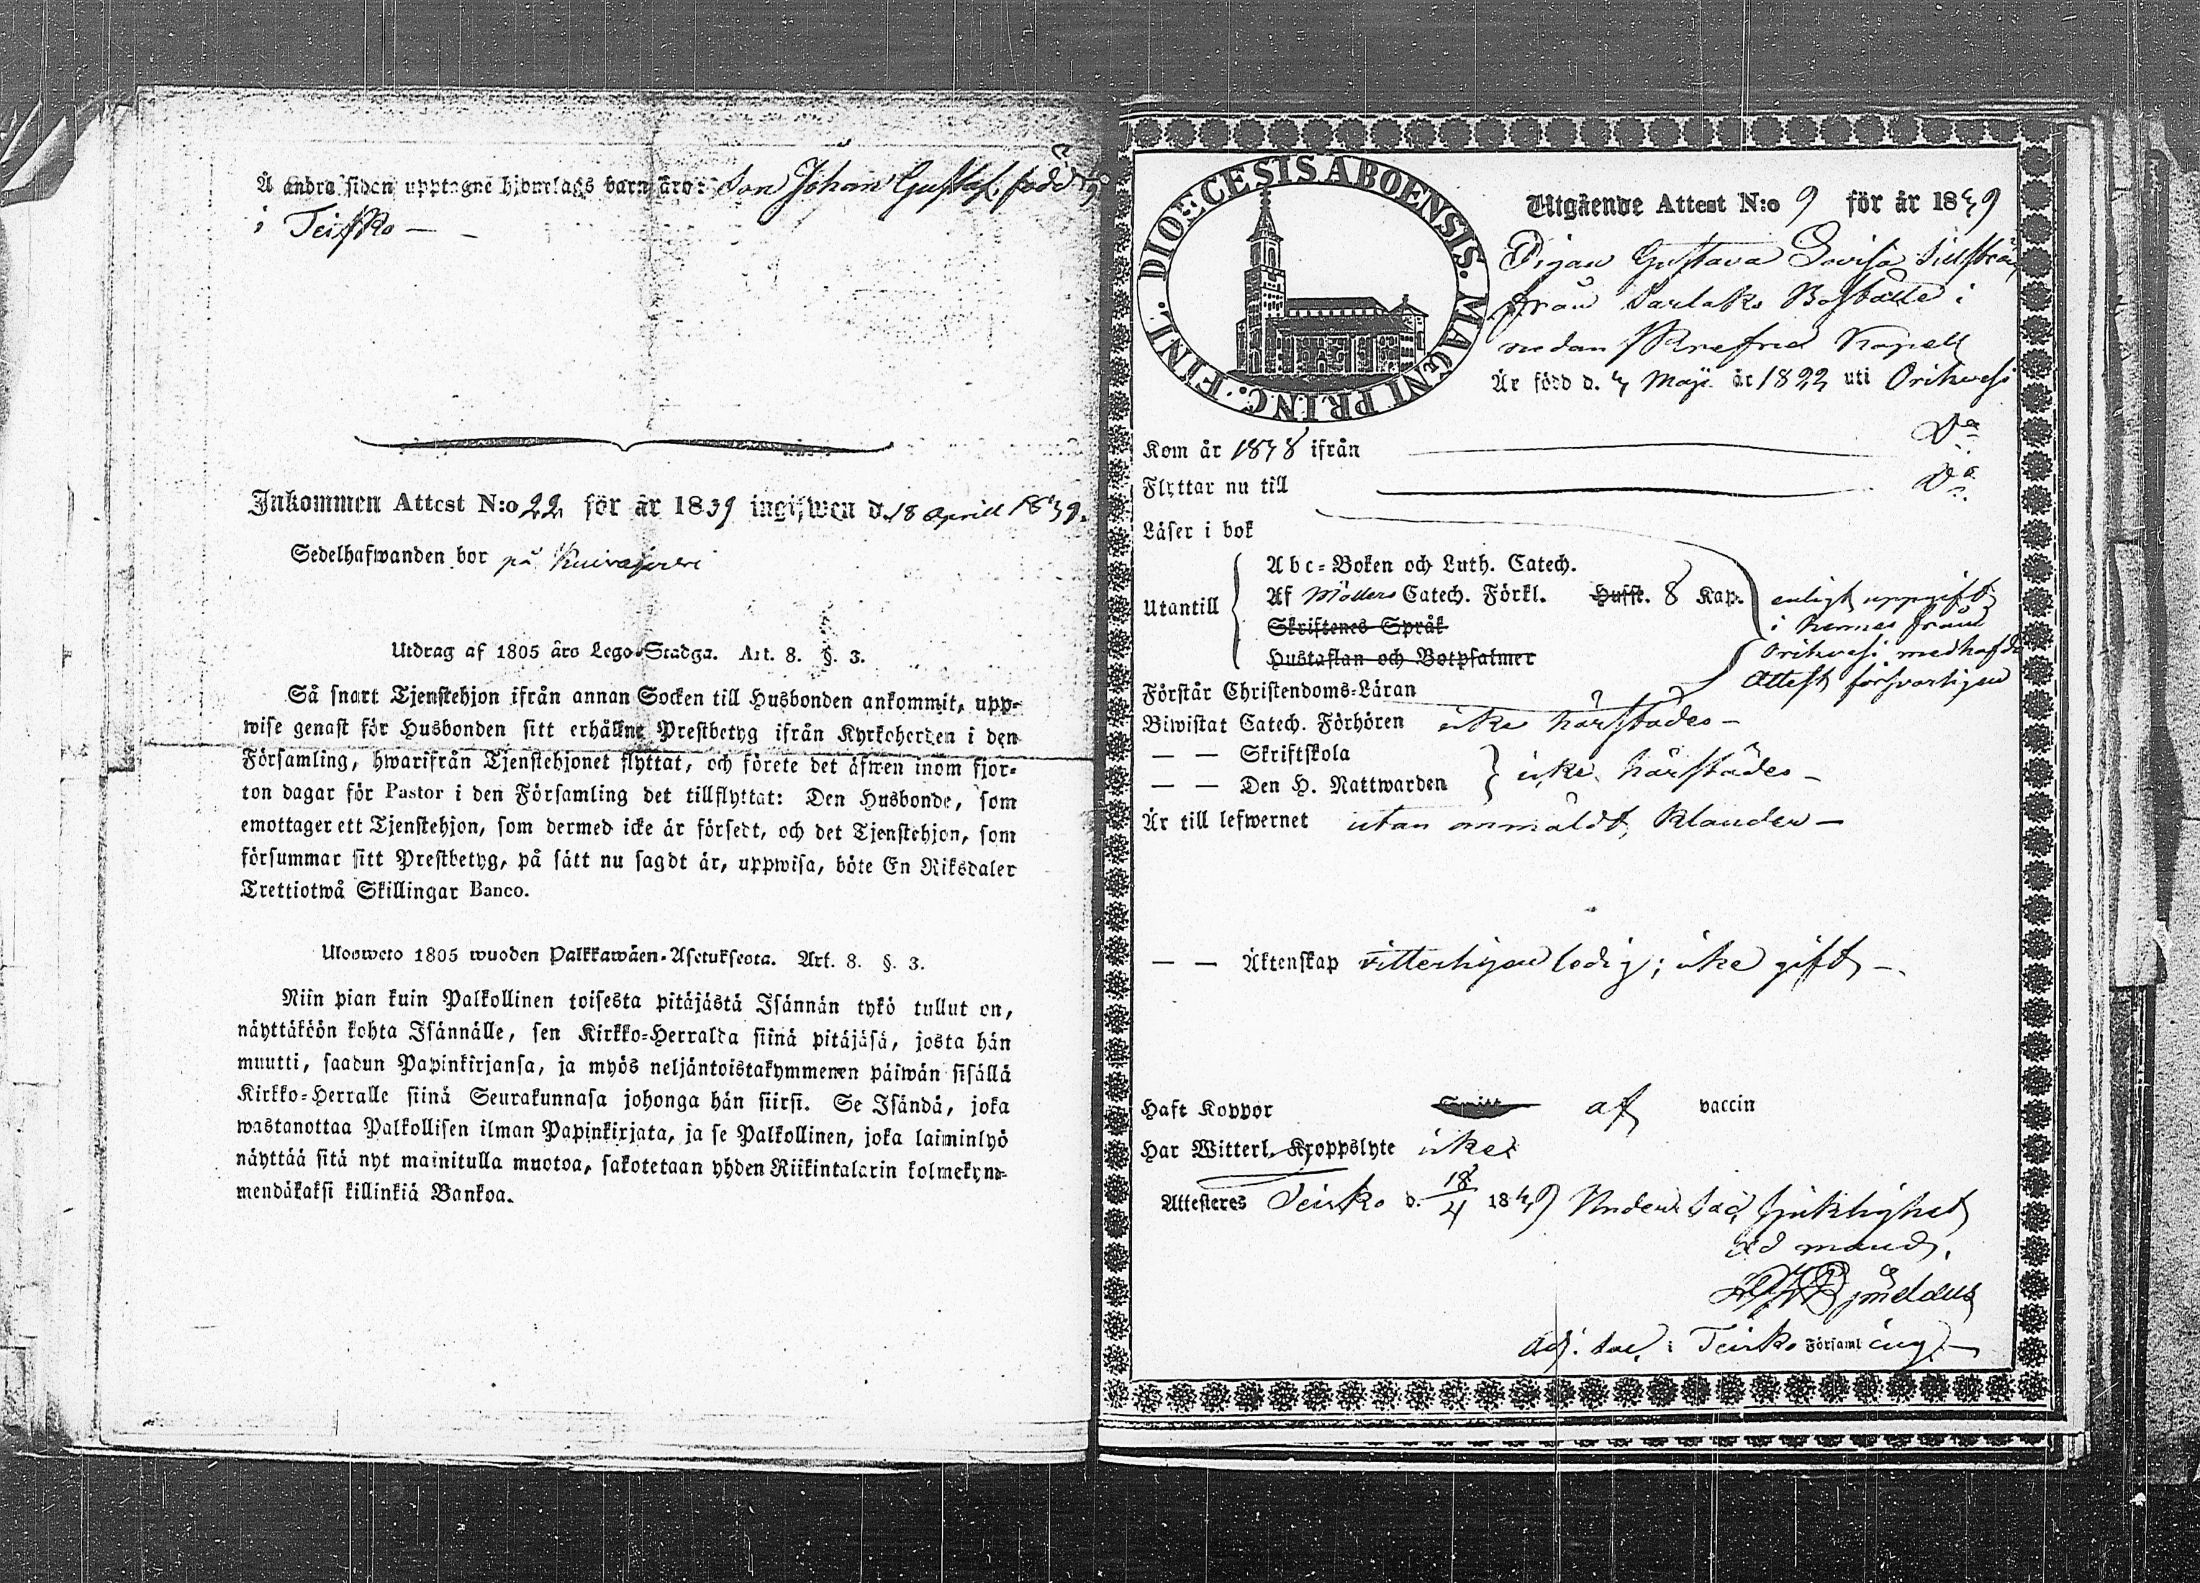 Å andra siden upptagne hjonelags barn äro: Son Johan Gustaf, född
i Teisko — -
Inkommen Attest N:o 22 för år 1839 ingifwen d. 18 Aprill 1839.
Sedelhafwanden bor på Kuivajerwi
Utdrag af 1805 års Lego-Stadga. Art. 8. §. 3.
Så snart Tjenstehjon ifrån annan Socken till Husbonden ankommit, upp-
wise genast för Husbonden sitt erhållne Prestbetyg ifrån Kyrkoherden i den
Församling, hwarifrån Tjenstehjonet flyttat, och förete det äfwen inom fjor-
ton dagar för Pastor i den Församling det tillflyttat: Den Husbonde, som
emottager ett Tjenstehjon, som dermed icke är försedt, och det Tjenstehjon, som
försummar sitt Prestbetyg, på sätt nu sagdt är, uppwisa, böte En Riksdaler
Trettiotwå Skillingar Banco.
Ulosweto 1805 wuoden Palkkawäen-Asetuksesta. Art. 8. §. 3.
Niin pian kuin Palkollinen toisesta pitäjästä Isännän tykö tullut on,
näyttäköön kohta Isännälle, sen Kirkko-Herralda siinä pitäjäsä, josta hän
muutti, saadun Papinkirjansa, ja myös neljäntoistakymmenen päiwän sisällä
Kirkko-Herralle siinä Seurakunnasa johonga hän siirsi. Se Isändä, joka
wastanottaa Palkollisen ilman Papinkirjata, ja se Palkollinen, joka laiminlyö
näyttää sitä nyt mainitulla muotoa, sakotetaan yhden Riikintalarin kolmekym-
mendäkaksi killinkiä Bankoa.
DIOECESIS ABOENSIS. MAGNI PRINC. FINL.
Utgående Attest N:o 9 för år 1839
Pigan Gustava Lovisa
från Sarlaks Boställe i
nedan Kapell
Är född d. 4 Maji år 1822 uti Orihvesi
Kom år 1838 ifrån Do
Flyttar nu till Do
Läser i bok
Utantill
Abc-Boken och Luth. Catech.
Af Möllers Catech. Förkl. Husst. 8 Kap.
Skriftenes Språk
Hustaflan och Botpsalmer
enligt uppgift
i hennes från
Orihvesi medhafda
Attest försvarligen
Förstår Christendoms-Läran
Biwistat Catech. Förhören icke härstädes —
— — Skriftskola
— — Den H. Nattwarden icke härstädes —
Är till lefwernet utan anmäldt klander —
— — Äktenskap witterligen ledig; icke gift —.
Haft Koppor af vaccin
Har Witterl. Kroppslyte icke
Attesteres Teisko d. 18/4 1839
ad mand.
Adj. Sac. i Teisko Församling. —